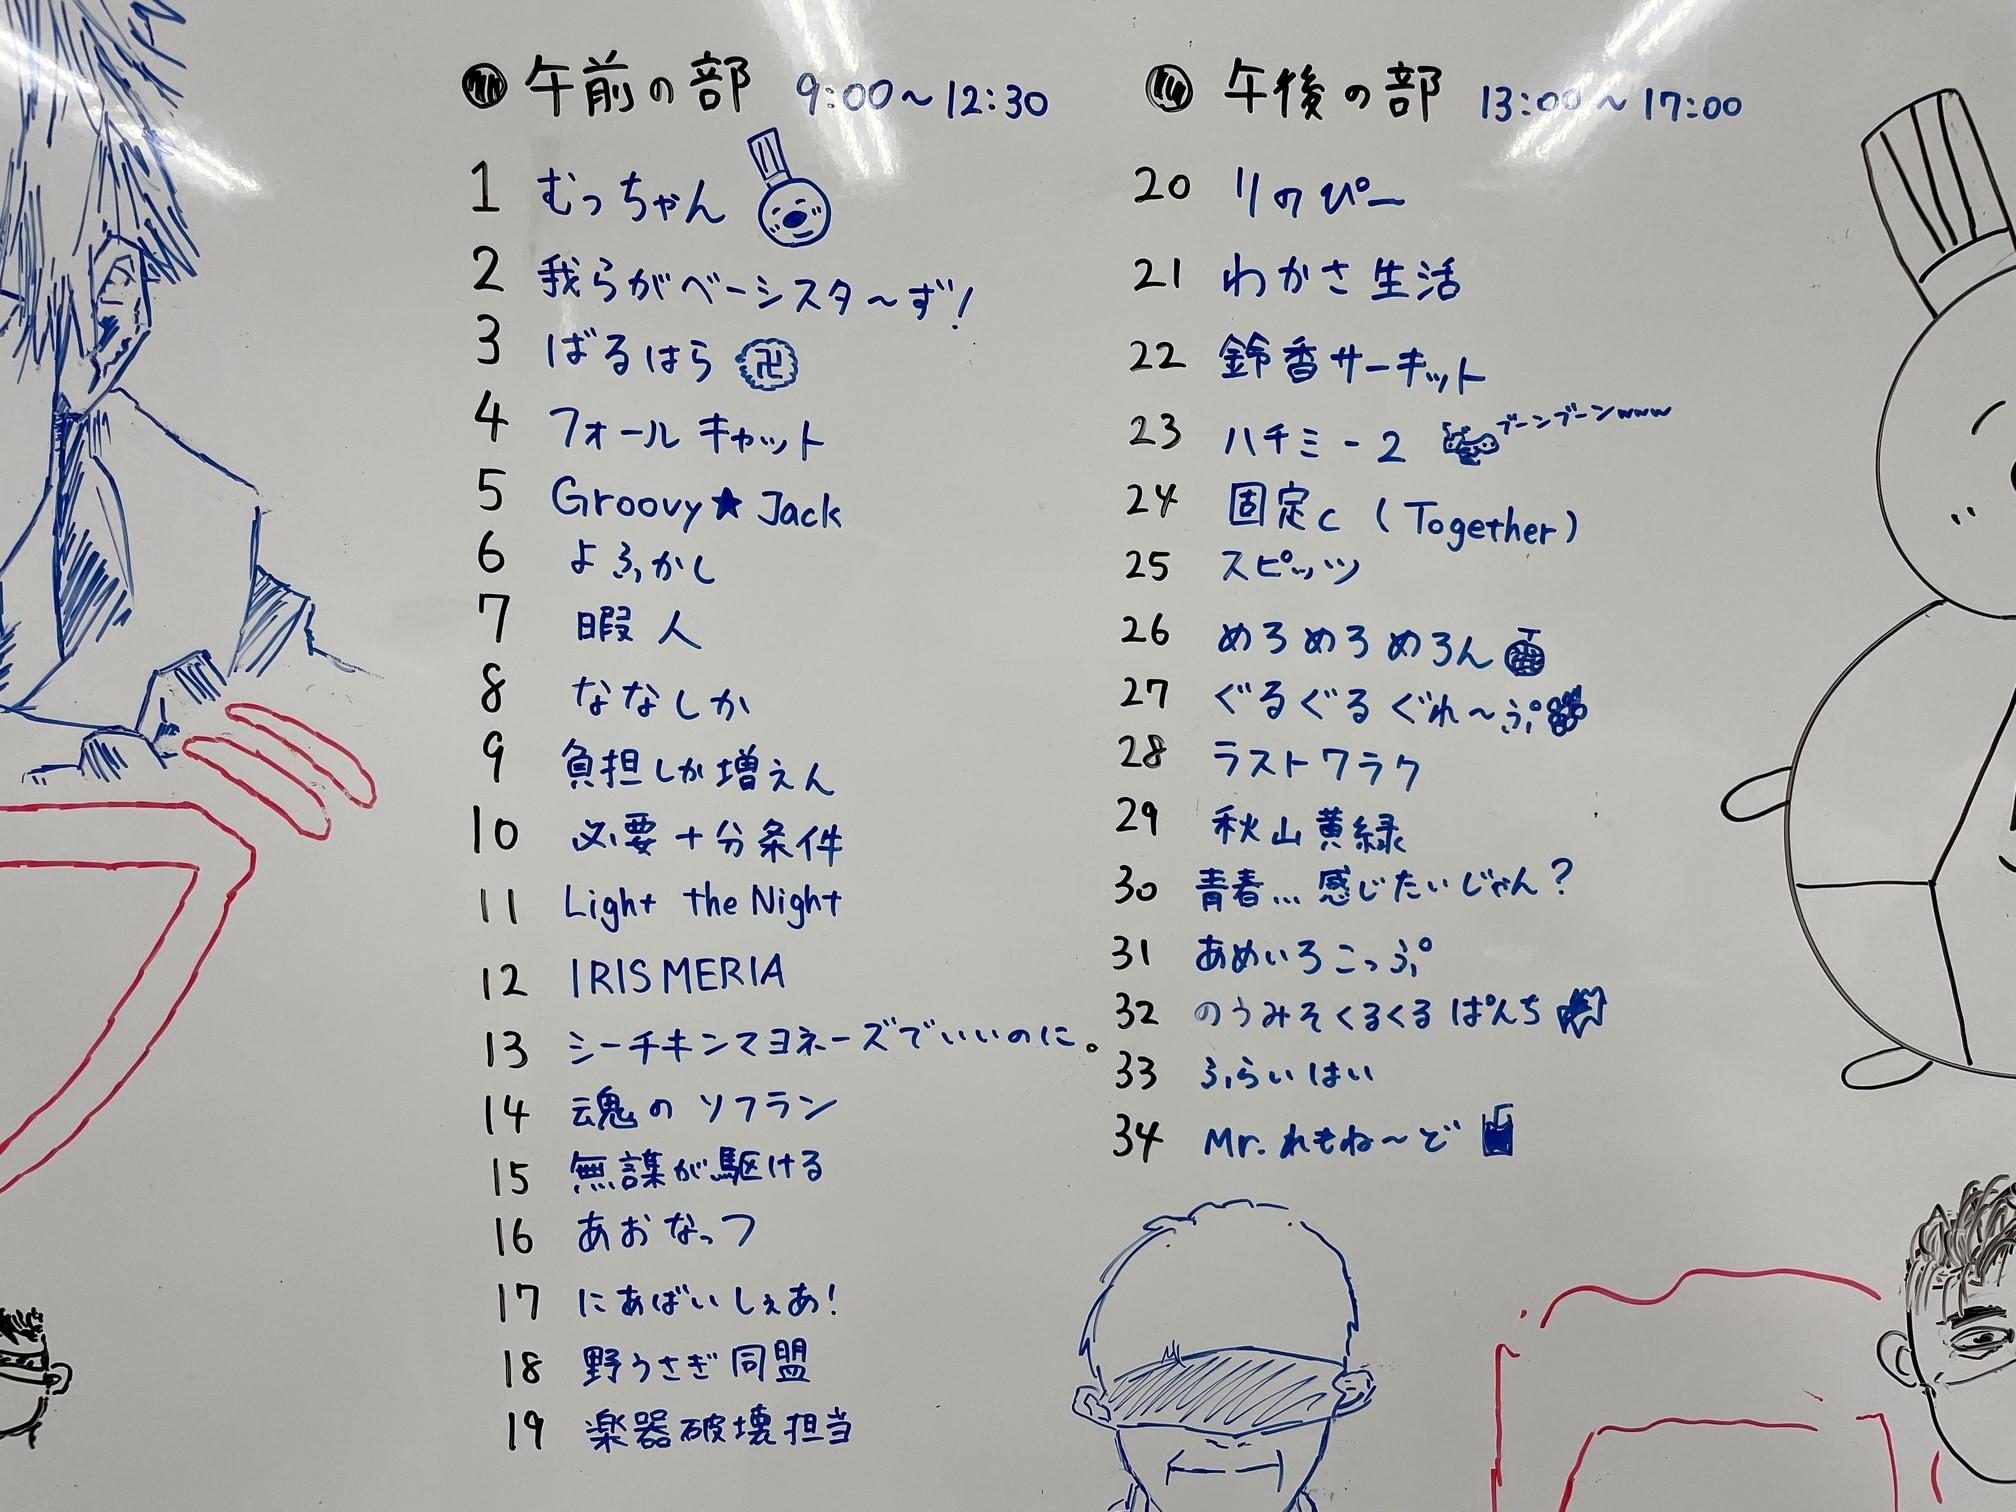 午前の部 9:00〜12:30
1 むっちゃん
2 我らがベーシスタ〜ず!
3 ばるはら 卍
4 フォールキャット
5 Groovy★Jack
6 よふかし
7 暇人
8 ななしか
9 負担しか増えん
10 必要十分条件
11 Light the Night
12 IRISMERIA
13 シーチキンマヨネーズでいいのに。
14 魂のソフラン
15 無謀が駆ける
16 あおなっつ
17 にあばいしぇあ!
18 野うさぎ同盟
19 楽器破壊担当
午後の部 13:00〜17:00
20 りのぴー
21 わかさ生活
22 鈴香サーキット
23 ハチミー2 ブーンブーンwww
24 固定c (Together)
25 スピッツ
26 めろめろめろん
27 ぐるぐるぐれ〜ぷ
28 ラストワラク
29 秋山黄緑
30 青春…感じたいじゃん?
31 あめいろこっぷ
32 のうみそくるくるぱんち
33 ふらいはい
34 Mr.れもね〜ど